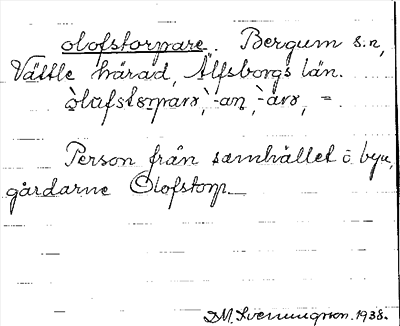 olofstorpare. Bergum s:n,
Vättle härad, Älfsborgs län.
òlàfstɷrparə, -an, -àrə, =.
Person från samhället o. byn,
gårdarne Olofstorp.
D.M. Svenningson. 1938.